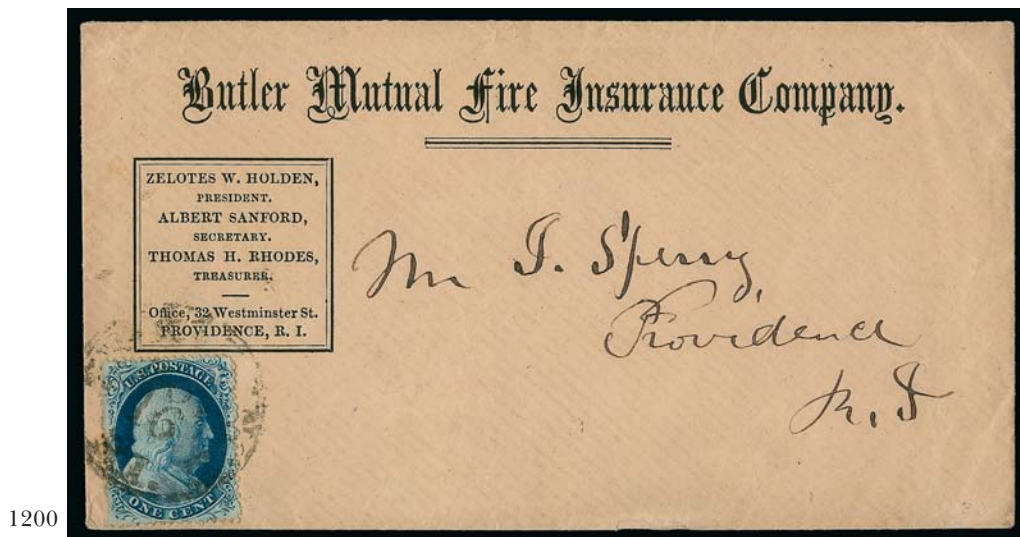 Butler Mutual Fire Insurance Company.
ZELOTES W. HOLDEN,
PRESIDENT.
ALBERT SANFORD,
SECRETARY.
THOMAS H. RHODES,
TREASURER.
Office, 32 Westminster St.
PROVIDENCE, R. I.
Mr I. Sperry,
Providence
R. I
U.S. POSTAGE
ONE CENT
1200